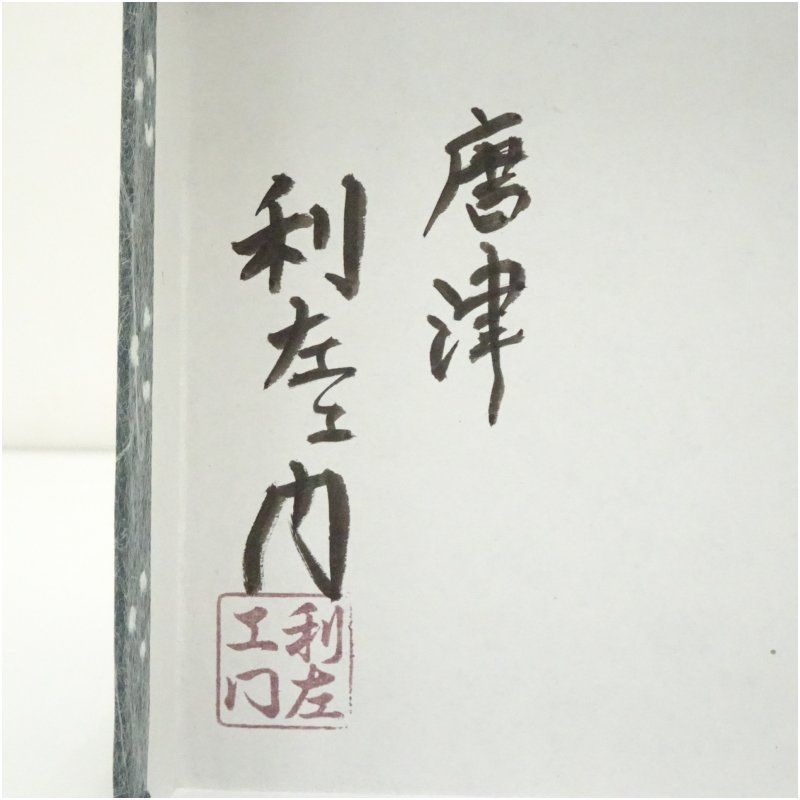 唐津
利左エ門
利左
エ门